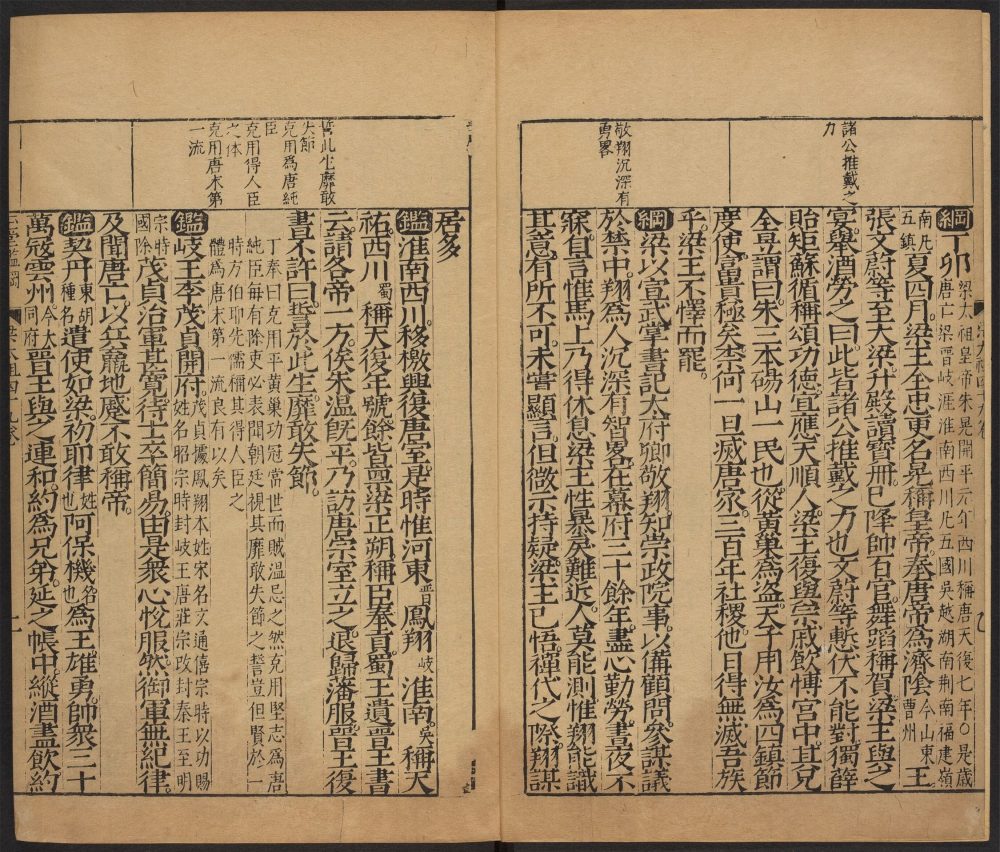 諸公推戴之
力
敬翔沉深有
勇畧
綱丁卯梁太祖皇帝朱晃開平元年西川稱唐天復七年○是歲
唐亡梁晉岐淮南西川凡五國吳越湖南荆南福建嶺
南凡五鎮夏四月梁王全忠更名晃稱皇帝奉唐帝爲濟陰今山東曹州王
張文蔚等至大梁升殿讀寶冊已降帥百官舞蹈稱賀梁主與之
宴舉酒勞之曰此皆諸公推戴之力也文蔚等慙伏不能對獨薛
貽矩蘇循稱頌功德宜應天順人梁主復與宗戚飲博宮中其兄
全昱謂曰朱三本碭山一民也從黃巢爲盜天子用汝爲四鎮節
度使富貴極矣柰何一旦滅唐家三百年社稷他日得無滅吾族
乎梁主不懌而罷
綱梁以宣武掌書記太府卿敬翔知崇政院事以備顧問叅謀議
於禁中翔爲人沉深有智畧在幕府三十餘年盡心勤勞晝夜不
寐自言惟馬上乃得休息梁主性暴戾難近人莫能測惟翔能識
其意有所不可未嘗顯言但微示持疑梁主已悟禪代之際翔謀
誓此生靡敢
失節
克用爲唐純
臣
克用得人臣
之体
克用唐末第
一流
居多
鑑淮南西川移檄興復唐室是時惟河東晉鳳翔岐淮南吳稱天
祐西川蜀稱天復年號餘皆稟梁正朔稱臣奉貢蜀王遺晉王書
云請各帝一方俟朱温旣平乃訪唐宗室立之退歸藩服晉王復
書不許曰誓於此生靡敢失節
丁奉曰克用平黃巢功冠當世而賊温忌之然克用堅志爲唐
純臣每有除吏必表聞朝廷視其靡敢失節之誓豈但賢於一
時方伯耶先儒稱其得人臣之
體爲唐末第一流良有以矣
鑑岐王李茂貞開府茂貞據鳳翔本姓宋名文通僖宗時以功賜
姓名昭宗時封岐王唐莊宗改封秦王至明
宗時國除茂貞治軍甚寬待士卒簡易由是衆心悅服然御軍無紀律
及聞唐亡以兵羸地蹙不敢稱帝
鑑契丹東胡種名遣使如梁初耶律姓也阿保機名也爲王雄勇帥衆三十
萬冦雲州今大同府晉王與之連和約爲兄弟延之帳中縱酒盡飲約